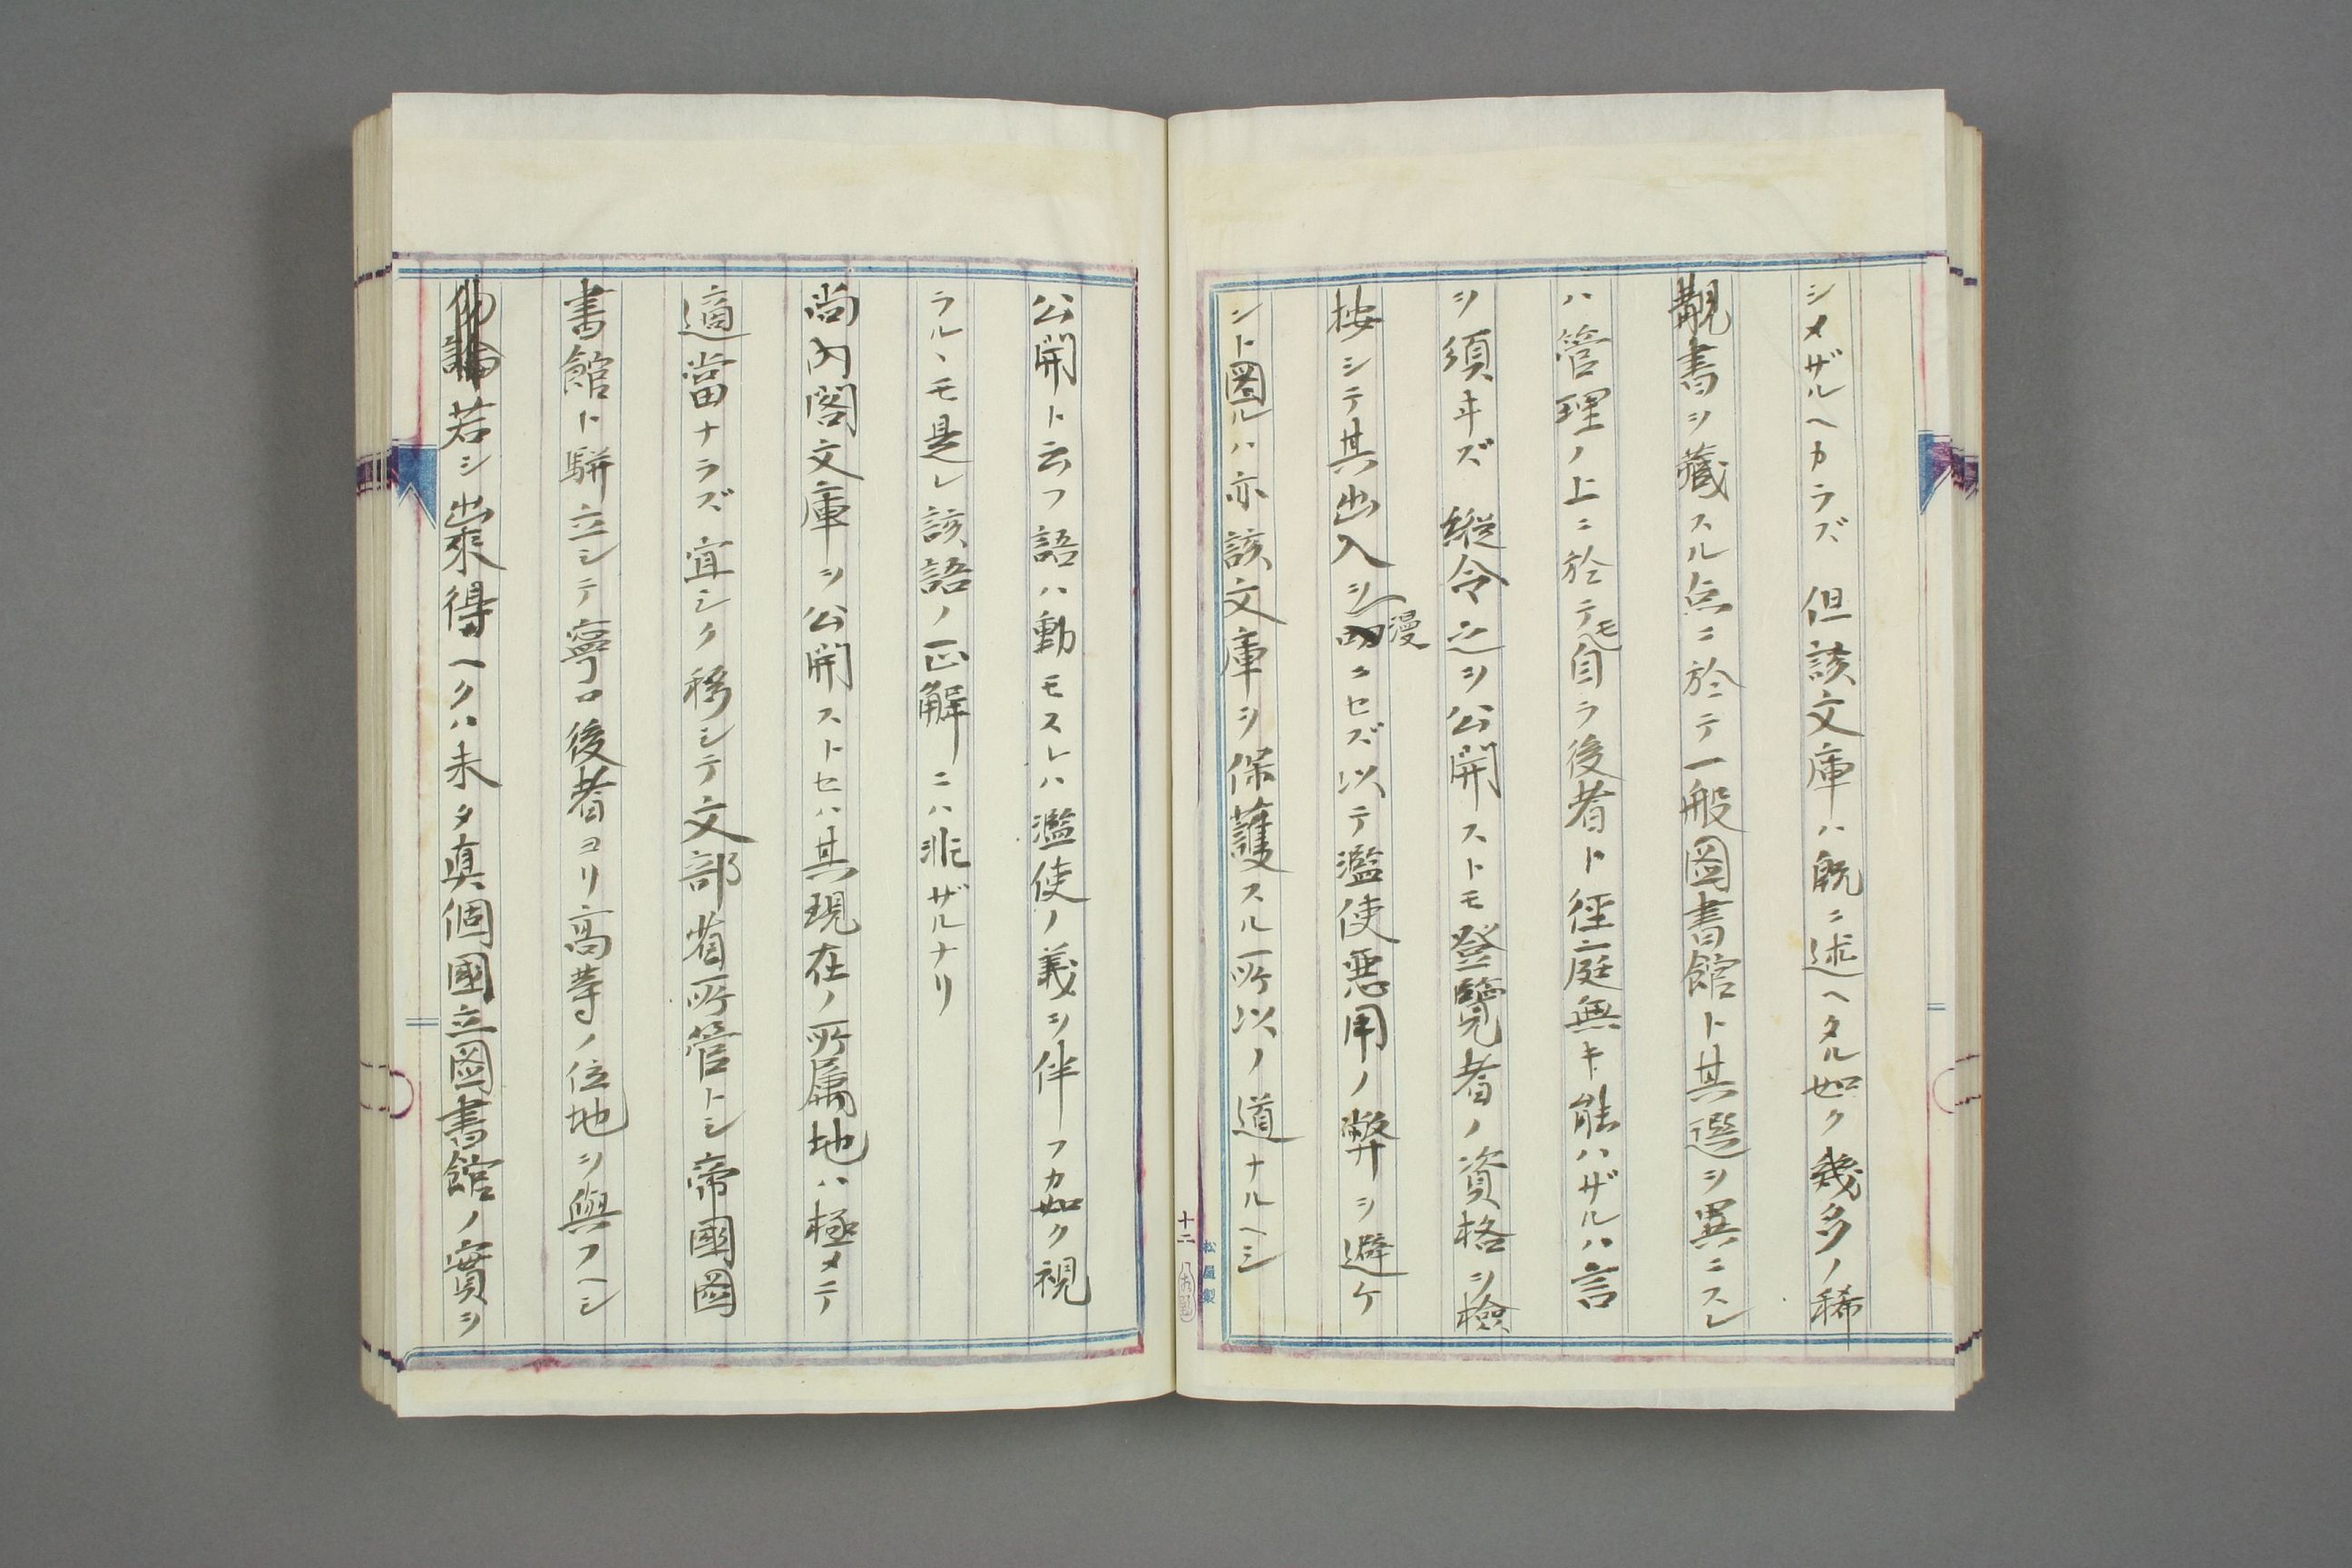 シメザルヘカラズ 但該文庫ハ既ニ述ヘタル如ク幾多ノ稀
覯書ヲ藏スル点ニ於テ一般圖書館ト其選ヲ異ニスレ
ハ管理ノ上ニ於テモ自ラ後者ト徑庭無キ能ハザルハ言
ヲ須ヰズ 縱令之ヲ公開ストモ登覽者ノ資格ヲ檢
按シテ其出入ヲ漫ニセズ以テ濫使悪用ノ弊ヲ避ケ
ント圖ルハ亦該文庫ヲ保護スル所以ノ道ナルヘシ
十二
松屋製
公開ト云フ語ハ動モスレハ濫使ノ義ヲ伴フカ如ク視
ラルヽモ是レ該語ノ正解ニハ非ザルナリ
尚内閣文庫ヲ公開ストセハ其現在ノ所属地ハ極メテ
適當ナラズ宜シク移シテ文部省所管トシ帝國圖
書館ト駢立シテ寧ロ後者ヨリ高等ノ位地ヲ與フヘシ
若シ出來得ヘクハ未タ真個國立圖書館ノ實ヲ